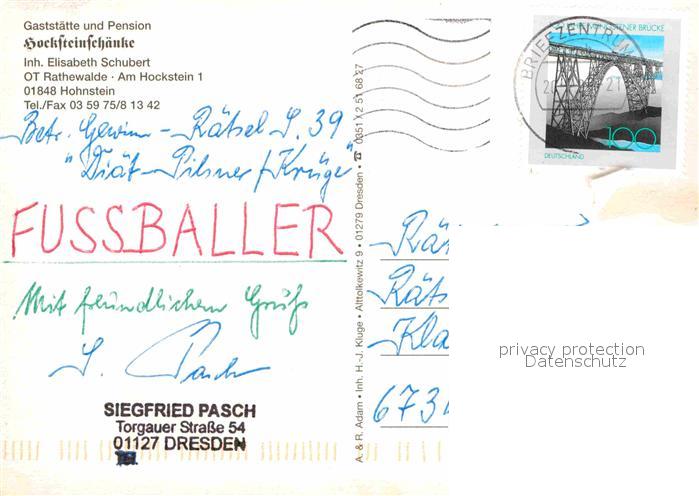 Gaststätte und Pension
Hocksteinschänke
Inh. Elisabeth Schubert
OT Rathewalde · Am Hockstein 1
01848 Hohnstein
Tel./Fax 03 59 75/8 13 42
Betr. Gewinn-Rätsel S. 39
"Diät-Pilsner/Krüge"
FUSSBALLER
Mit freundlichem Gruß
S. Pasch
SIEGFRIED PASCH
Torgauer Straße 54
01127 DRESDEN
A. & R. Adam • Inh. H.-J. Kluge • Alttolkewitz 9 • 01279 Dresden • ☎ 0351 / 2 51 68 27
BRIEFZENTRUM
21
100
DEUTSCHLAND
Rä
Räts
Kla
673
privacy protection
Datenschutz